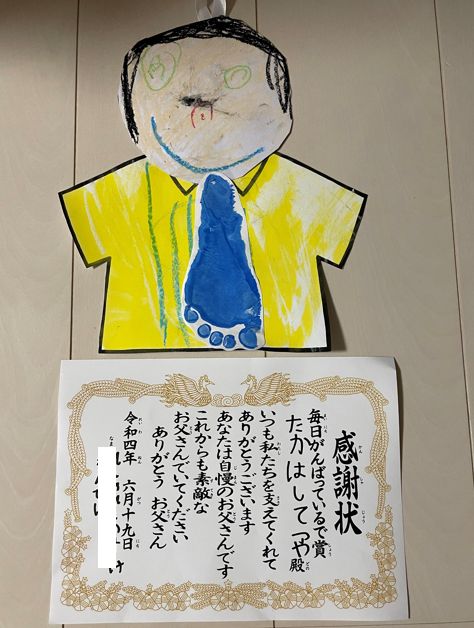 感謝状
毎日がんばっているで賞
たかはしてつや殿
いつも私たちを支えてくれて
ありがとうございます
あなたは自慢のお父さんです。
これからも素敵な
お父さんでいてください
ありがとう お父さん
令和四年 六月十九日